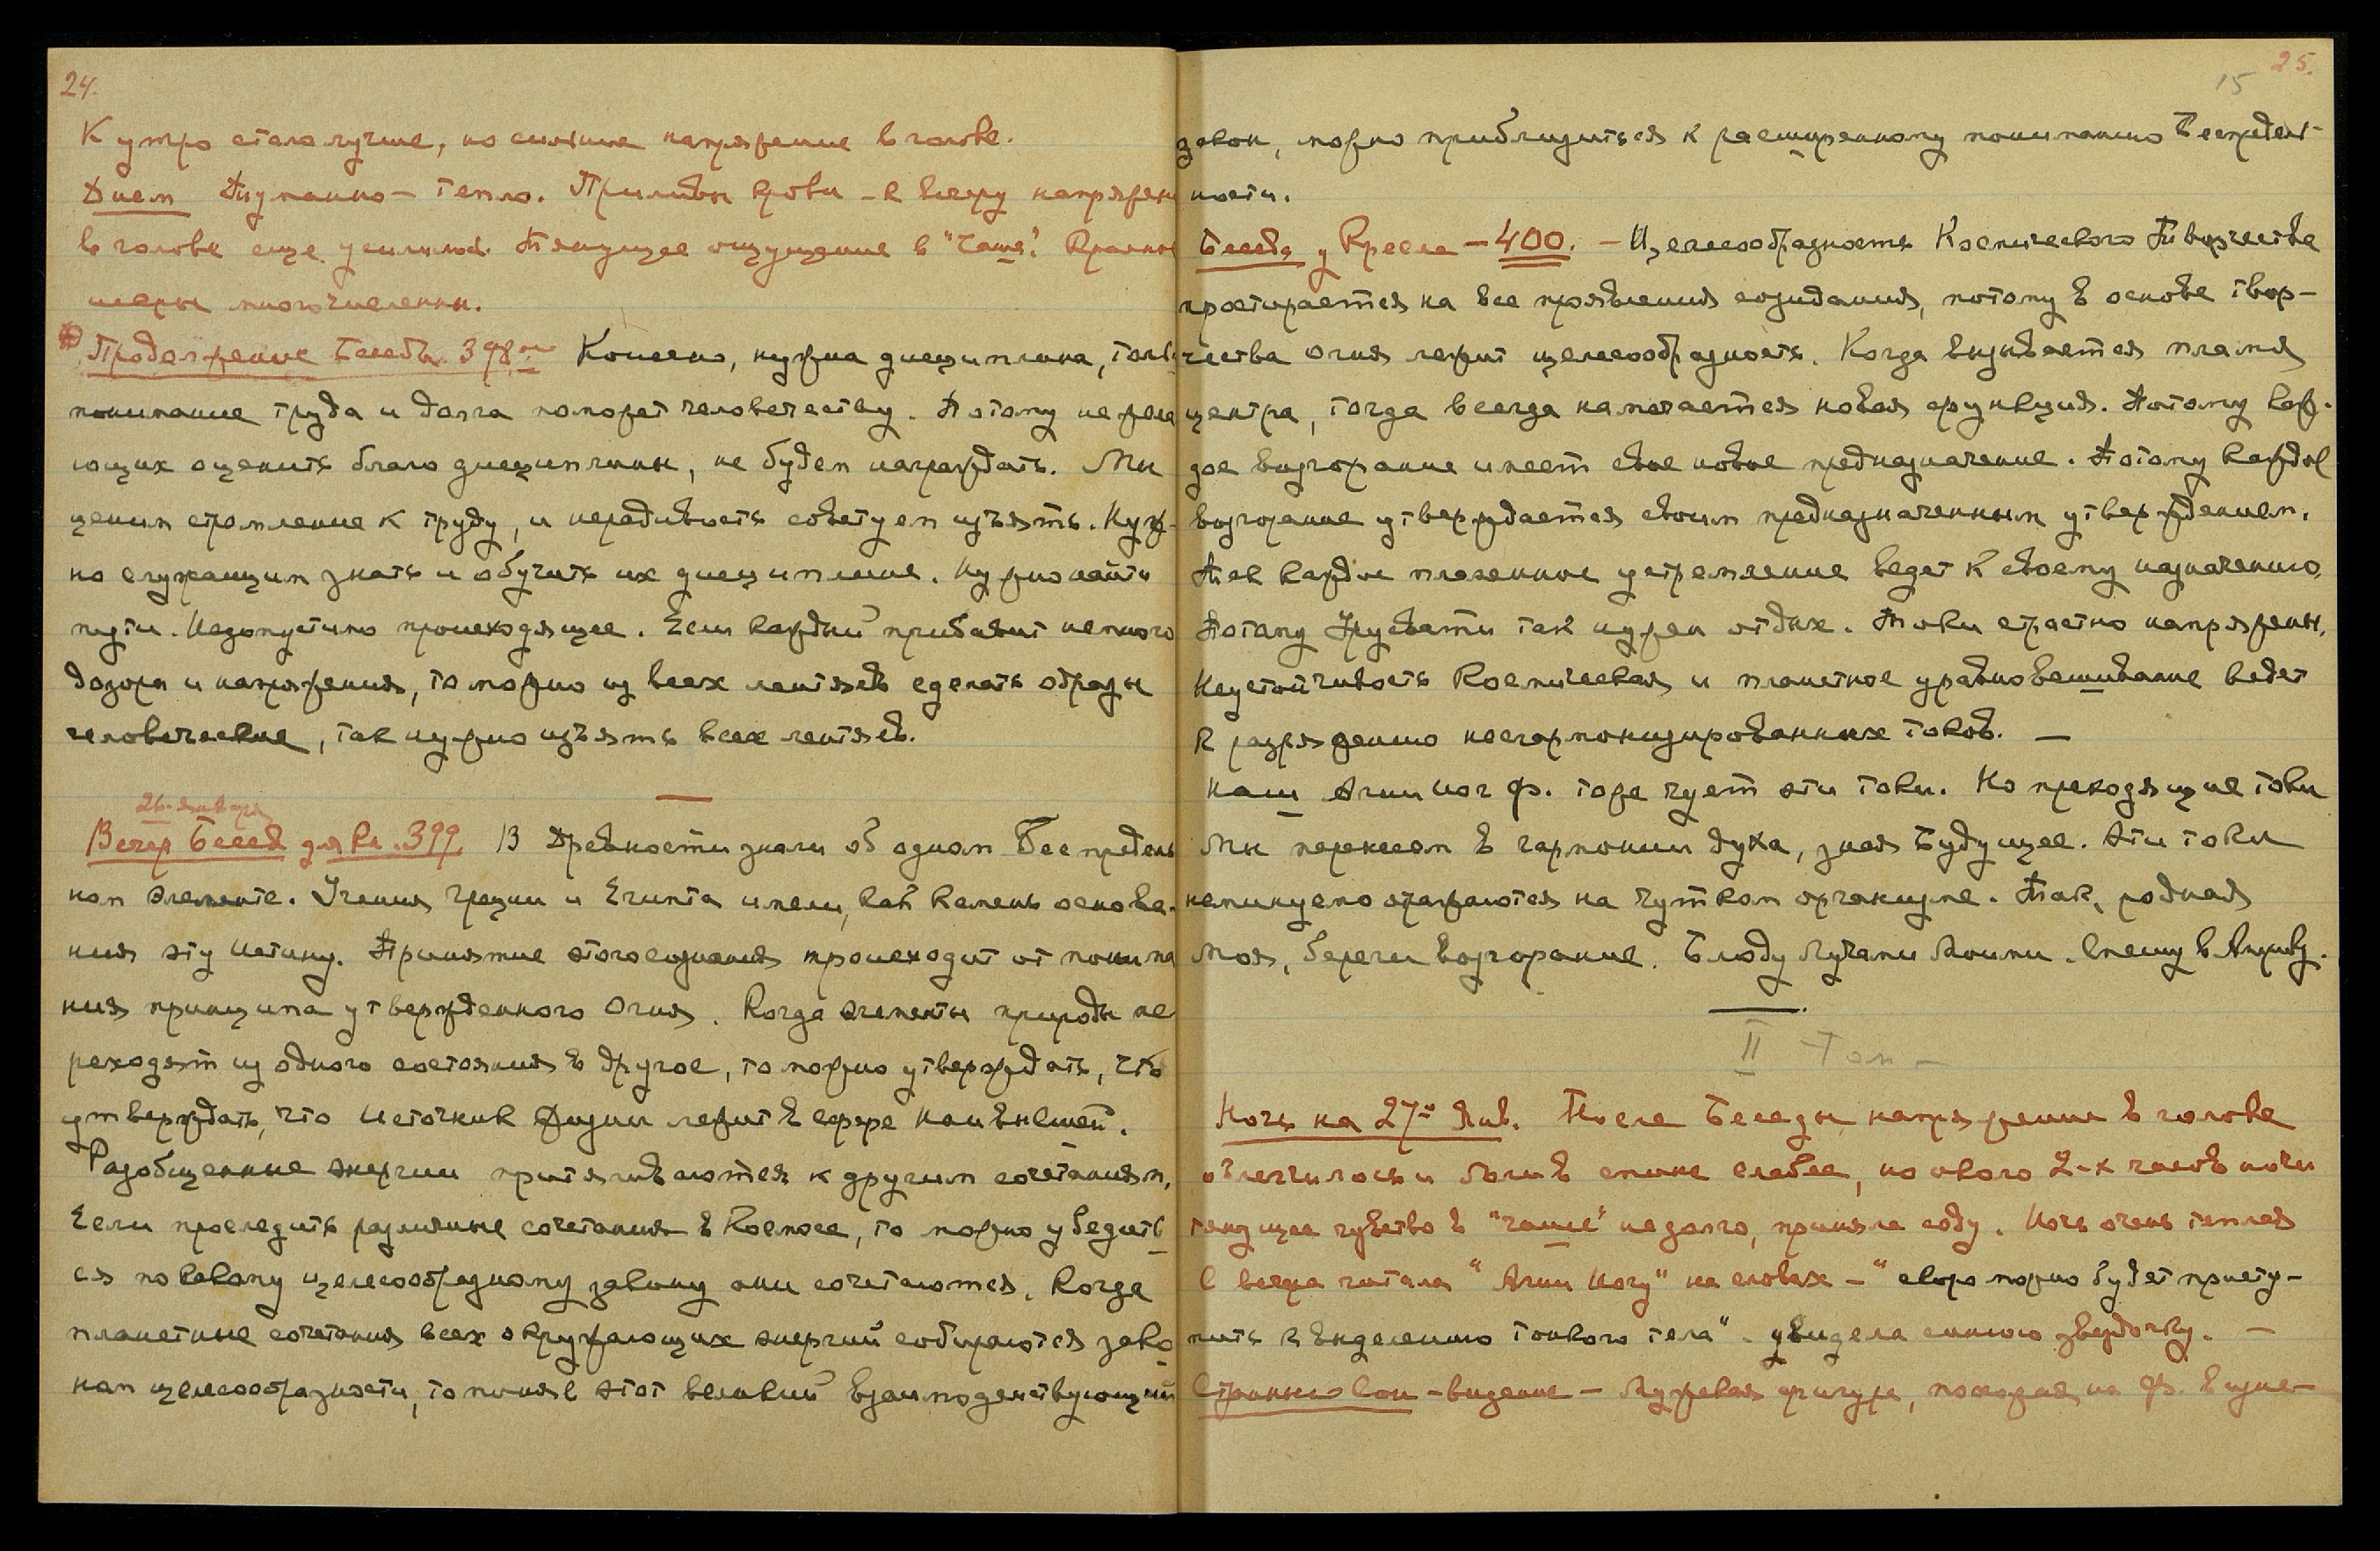 24.
К утро стало лучше, но сильное напряжение в голове.
Днем Туманно – тепло. Приливы крови – к вечеру напряжен
в голове еще усилилось. Тянущее ощущение в "Чаше".
шары многочисленны.
Продолжение Беседы 398ой Конечно, нужна дисциплина, толь
понимание труда и долга поможет человечеству. Потому не жела
ющих оценить благо дисциплины, не будем награждать. Мы
ценим стремление к труду, и нерадивость советуем изъять. Нуж-
но служащим знать и обучить их дисциплине. Нужно найти
пути. Недопустимо происходящее. Если каждый прибавит немного
дозора и напряжения, то можно из всех лентяев сделать образы
человеческие, так нужно изъять всех лентяев.
26-января
Вечер Бесед для Кл. 399. В Древности знали об одном Беспредель
ном элементе. Учения Греции и Египта имели, как камень основа-
ния эту Истину. Принятие этого сознания происходит от понима
ния принципа утвержденного Огня. Когда элементы природы пе
реходят из одного состояния в другое, то можно утверждать, что
утверждать, что Источник Жизни лежит в сфере Наивысшей.
Разобщенные энергии притягиваются к другим сочетаниям,
Если проследить различные сочетания в Космосе, то можно убедить
ся по какому целесообразному закону они сочетаются. Когда
планетные сочетания всех окружающих энергий собираются зако
ном целесообразности, то поняв этот великий взаимодействующий
15 25.
закон, можно приблизиться к расширенному пониманию Беспредель-
ности.
Беседа у Кресла – 400. – Целесообразность Космического Творчества
простирается на все проявления созидания, потому в основе твор-
чества Огня лежит целесообразность. Когда вызывается пламя
центра, тогда всегда намечается новая функция. Потому каж-
дое возгорание имеет свое новое предназначение. Потому каждое
возгорание утверждается своим предназначенным утверждением.
Так каждое пламенное устремление ведет к своему назначению,
Потому Урусвати так нужен отдых. Токи страстно напряжены,
Неустойчивость Космическая и планетное уравновешивание ведет
к разряжению несгармонизированных токов. –
Наш Агни Йог Ф. тоже чует эти токи. Но преходящие токи
Мы перенесем в гармонии духа, зная Будущее. Эти токи
неминуемо отражаются на чутком организме. Так, родная
Моя, береги возгорание. Блюду Лучами Моими. Спешу в
II Том –
Ночь на 27ое Янв. После Беседы напряжение в голове
облегчилось и боли в спине слабее, но около 2-х часов ночи
тянущее чувство в "чаше" недолго, приняла соду. Ночь очень теплая
С вечера читала "Агни Йогу" на словах – "скоро можно будет присту-
пить к выделению тонкого тела". увидела синюю звездочку. –
Странный Сон – видение – Мужская фигура, похожая на Ф.